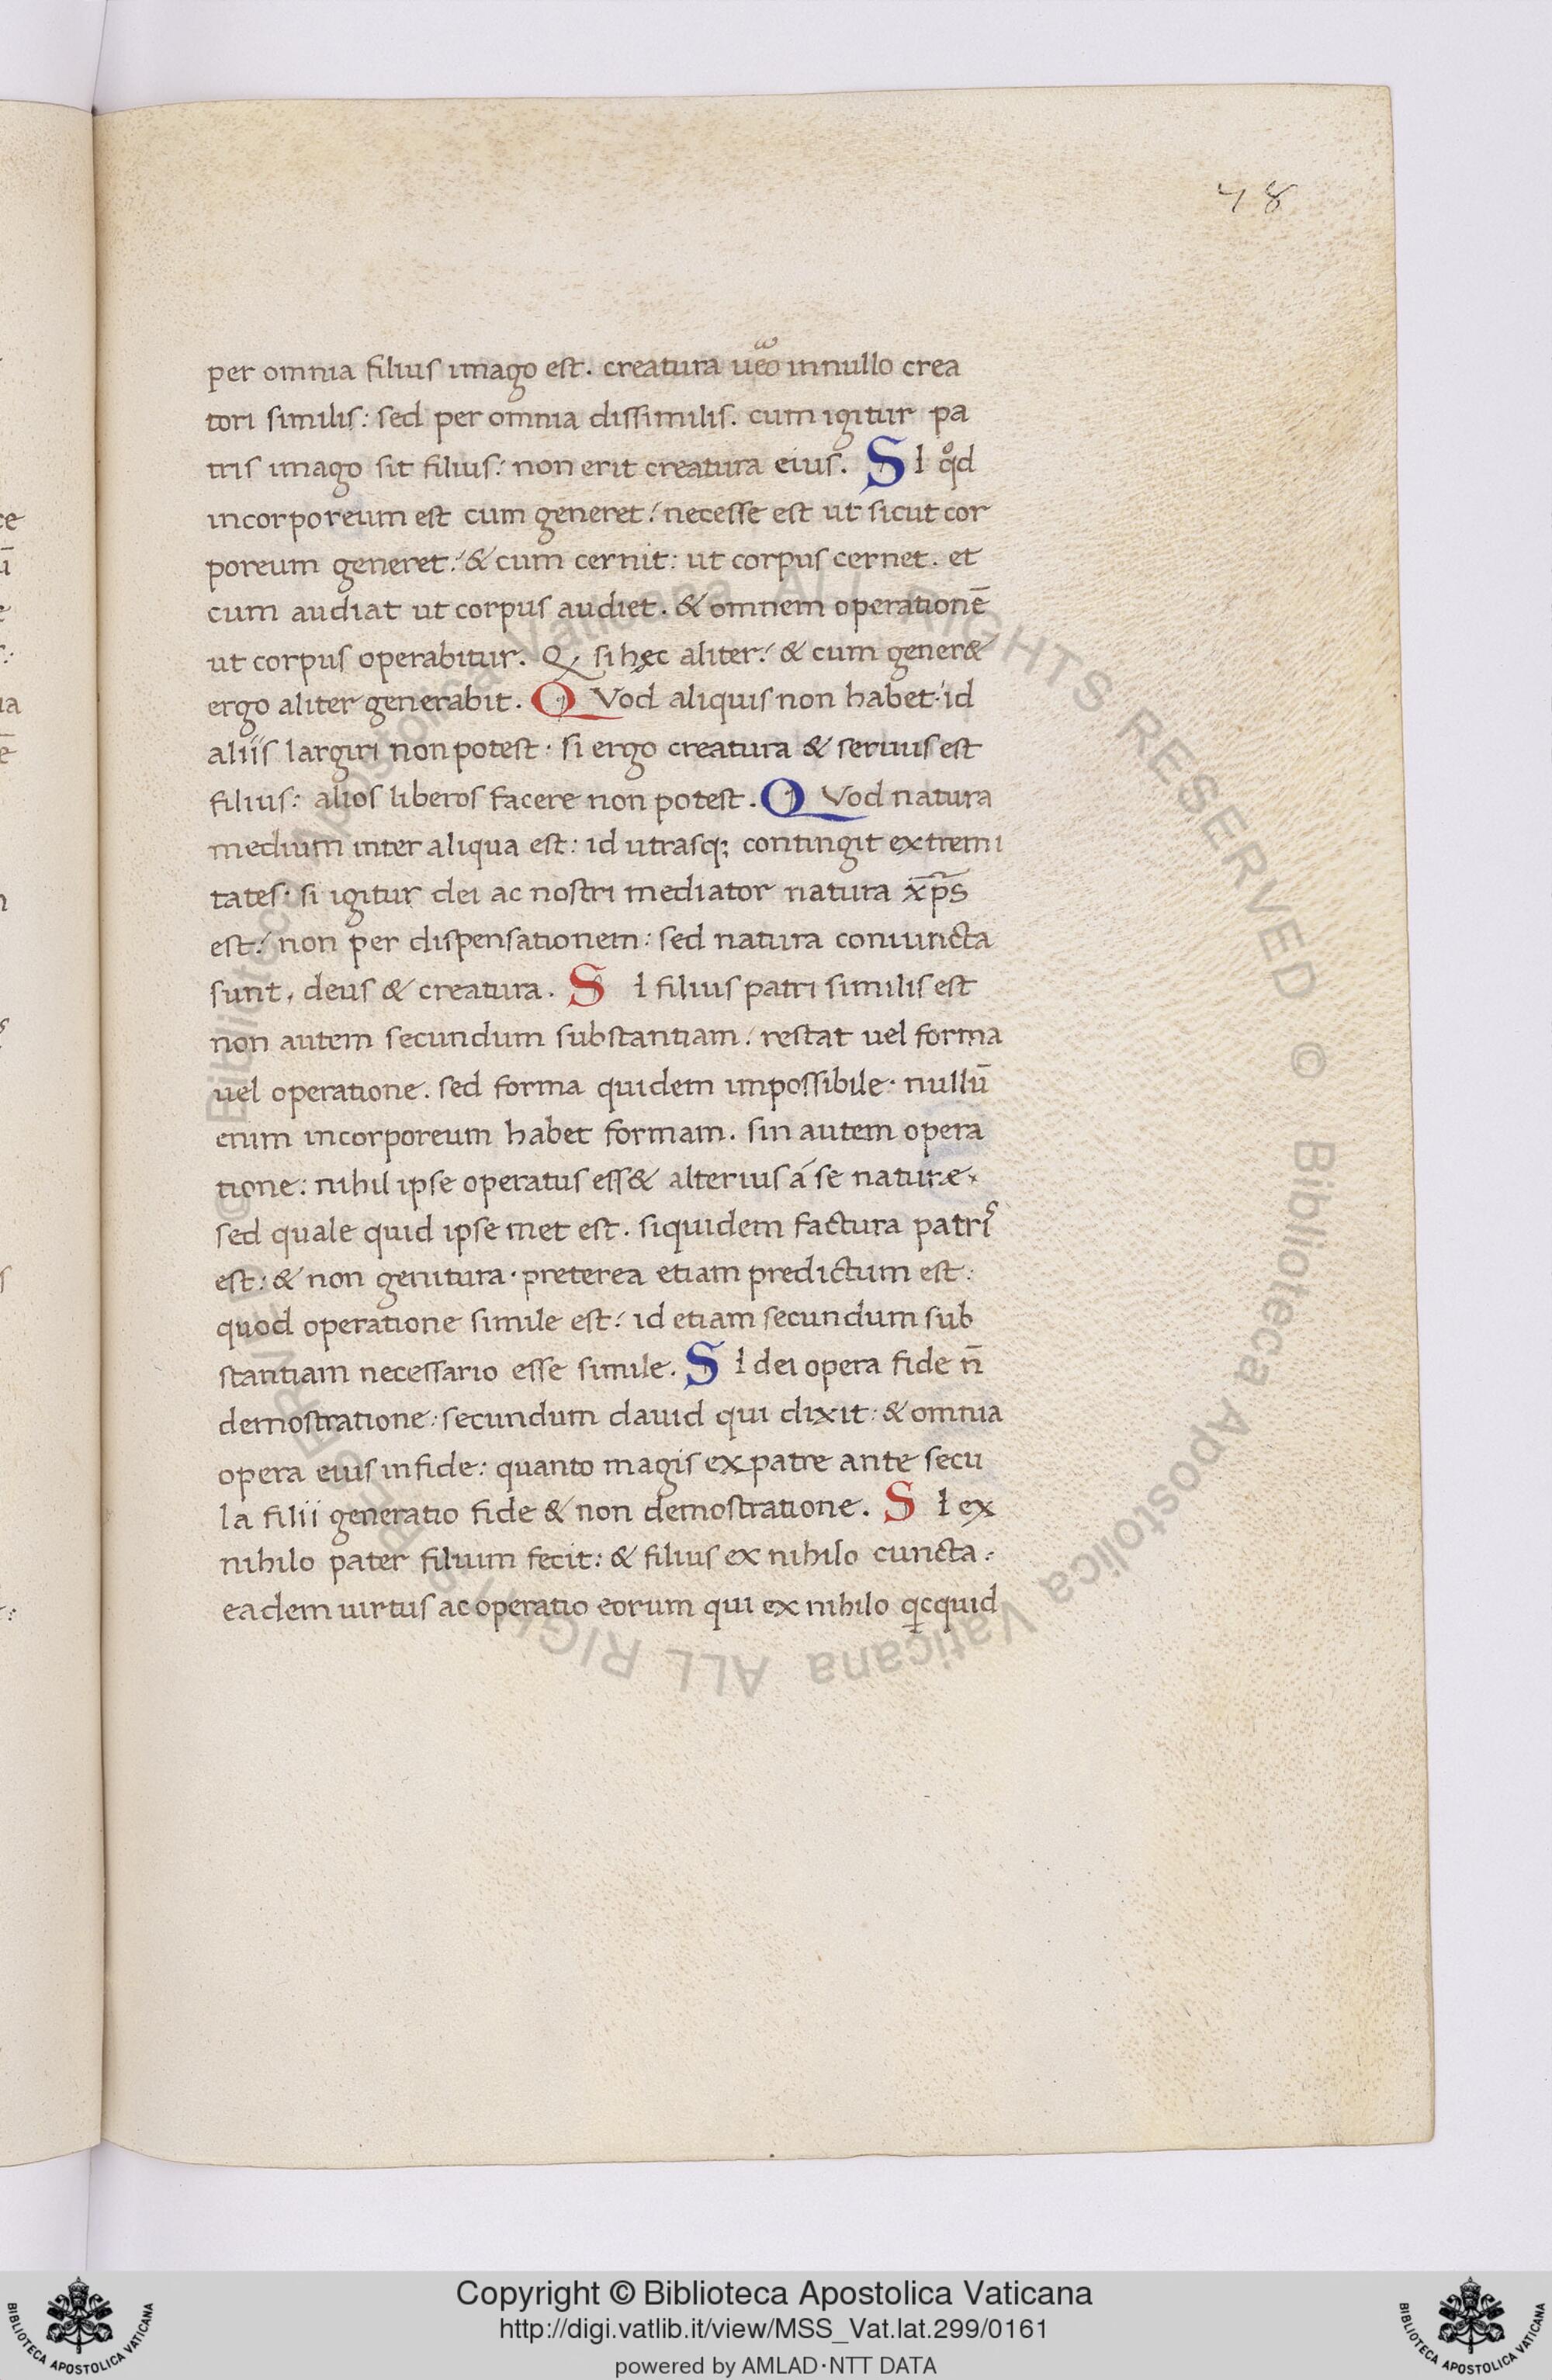 48
per omnia filius imago est. creatura uėo innullo crea
tori similis: sed per omnia dissimilis. cum igitur pa
tris imago sit filius: non erit creatura eius. SI qͦd
incorporeum est cum generet: necesse est ut sicut cor
poreum generet: & cum cernit: ut corpus cernet. et
cum audiat ut corpus audiet. & omnem operationē
ut corpus operabitur. Q, si hęc aliter: & cum gener&
ergo aliter generabit. QVod aliquis non habet: id
aliis largiri non potest. si ergo creatura & seruus est
filius: alios liberos facere non potest. QVod natura
medium inter aliqua est: id utrasq; contingit extremi
tates. si igitur dei ac nostri mediator natura xp̄s
est: non per dispensationem: sed natura coniuncta
sunt, deus & creatura. SI filius patri similis est
non autem secundum substantiam: restat uel forma
uel operatione. sed forma quidem impossibile. nullū
enim incorporeum habet formam. sin autem opera
tione: nihil ipse operatus ess& alterius á se naturæ.
sed quale quid ipse met est. siquidem factura patris
est: & non genitura. preterea etiam predictum est:
quod operatione simile est: id etiam secundum sub
stantiam necessario esse simile. SI dei opera fide n̄
demostratione: secundum dauid qui dixit: & omnia
opera eius in fide: quanto magis ex patre ante secu
la filii generatio fide & non demostratione. SI ex
nihilo pater filium fecit: & filius ex nihilo cuncta:
eadem uirtus ac operatio eorum qui ex nihilo qcquid
© Biblioteca Apostolica Vaticana ALL RIGHTS RESERVED © Biblioteca Apostolica Vaticana ALL RIGHTS RESERVED
Copyright © Biblioteca Apostolica Vaticana
http://digi.vatlib.it/view/MSS_Vat.lat.299/0161
powered by AMLAD·NTT DATA
BIBLIOTECA APOSTOLICA VATICANA
BIBLIOTECA APOSTOLICA VATICANA